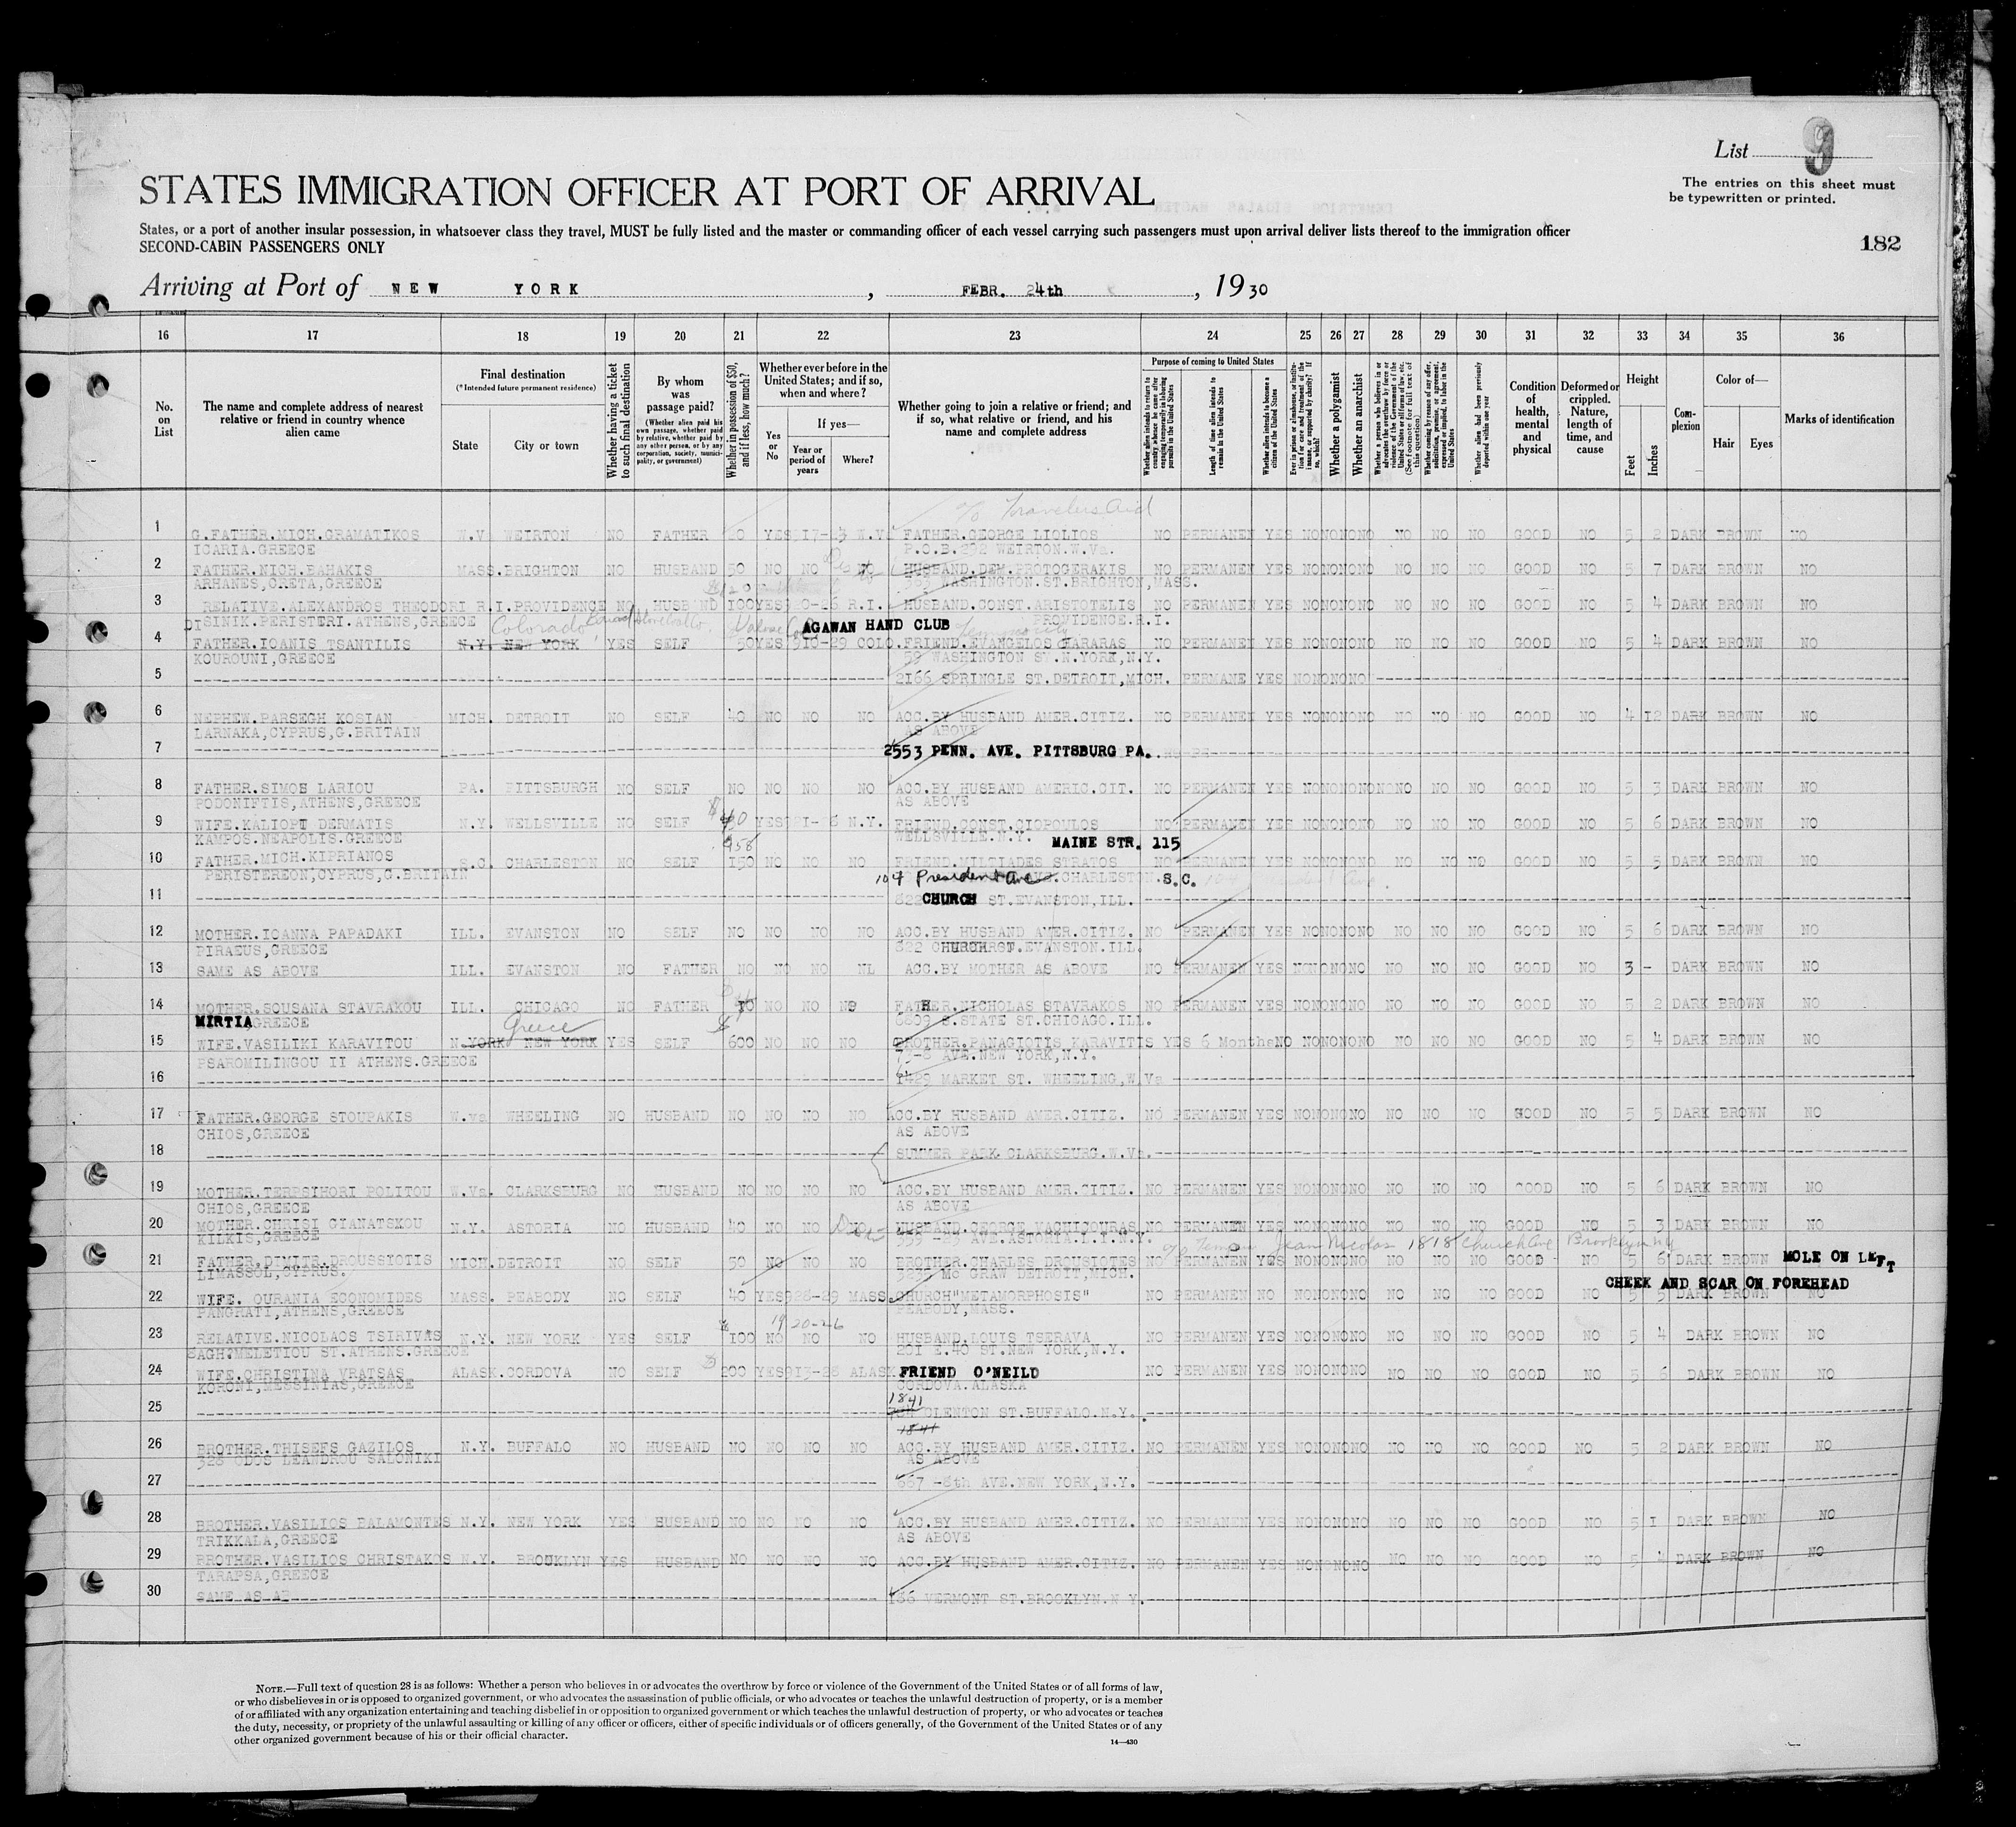 List 9
The entries on this sheet must
be typewritten or printed.
STATES IMMIGRATION OFFICER AT PORT OF ARRIVAL
States, or a port of another insular possession, in whatsoever class they travel, MUST be fully listed and the master or commanding officer of each vessel carrying such passengers must upon arrival deliver lists thereof to the immigration officer
SECOND-CABIN PASSENGERS ONLY
182
Arriving at Port of NEW YORK, FEBR. 24th, 1930
16 17 18 19 20 21 22 23 24 25 26 27 28 29 30 31 32 33 34 35 36
No. on List
The name and complete address of nearest relative or friend in country whence alien came
Final destination
(* Intended future permanent residence)
State
City or town
Whether having a ticket to such final destination
By whom was passage paid?
(Whether alien paid his own passage, whether paid by relative, whether paid by any other person, or by any corporation, society, municipality, or government)
Whether in possession of $50, and if less, how much?
Whether ever before in the United States; and if so, when and where?
Yes or No
If yes—
Year or period of years
Where?
Whether going to join a relative or friend; and if so, what relative or friend, and his name and complete address
Purpose of coming to United States
Whether alien intends to return to country whence he came after engaging temporarily in laboring pursuits in the United States
Length of time alien intends to remain in the United States
Whether alien intends to become a citizen of the United States
Ever in prison or almshouse, or institution for care and treatment of the insane, or supported by charity? If so, which?
Whether a polygamist
Whether an anarchist
Whether a person who believes in or advocates the overthrow by force or violence of the Government of the United States or all forms of law, etc. (See footnote for full text of this question)
Whether coming by reason of any offer, solicitation, promise, or agreement, expressed or implied, to labor in the United States
Whether alien had been previously deported within one year
Condition of health, mental and physical
Deformed or crippled. Nature, length of time, and cause
Height
Feet
Inches
Complexion
Color of—
Hair
Eyes
Marks of identification
c/o Travelers Aid
1 G.FATHER.MICH.GRAMATIKOS W.V WEIRTON NO FATHER YES W.Va FATHER.GEORGE LIOLIOS NO PERMANEN YES NO NO NO NO NO NO GOOD NO 5 2 DARK BROWN NO
ICARIA.GREECE P.O.B.292 WEIRTON.W.Va.
2 FATHER.NICH.BAHAKIS MASS.BRIGHTON NO HUSBAND 50 NO NO NO HUSBAND.DEM.PROTOGERAKIS NO PERMANEN YES NO NO NO NO NO NO GOOD NO 5 7 DARK BROWN NO
ARHANES,CRETA,GREECE WASHINGTON.ST.BRIGHTON,MASS.
3 RELATIVE.ALEXANDROS THEODORI R.I.PROVIDENCE NO HUSBAND 100 YES 920-26 R.I. HUSBAND.CONST.ARISTOTELIS NO PERMANEN YES NO NO NO NO NO NO GOOD NO 5 4 DARK BROWN NO
DISINIK.PERISTERI.ATHENS,GREECE Colorado AGAWAN HAND CLUB PROVIDENCE.R.I.
4 FATHER.IOANIS TSANTILIS N.Y. NEW YORK YES SELF 50 YES 910-29 COLO. FRIEND.EVANGELOS FARARAS NO PERMANEN YES NO NO NO NO NO NO GOOD NO 5 4 DARK BROWN NO
KOUROUNI,GREECE 59 WASHINGTON ST.N.YORK,N.Y.
5 2166 SPRINGLE ST.DETROIT,MICH. PERMANE YES NO NO NO NO
6 NEPHEW.PARSEGH KOSIAN MICH. DETROIT NO SELF 40 NO NO NO ACC.BY HUSBAND AMER.CITIZ. NO PERMANEN YES NO NO NO NO NO NO GOOD NO 4 12 DARK BROWN NO
LARNAKA,CYPRUS,G.BRITAIN AS ABOVE
7 2553 PENN. AVE. PITTSBURG PA.
8 FATHER.SIMOS LARIOU PA. PITTSBURGH NO SELF NO NO NO NO ACC.BY HUSBAND AMERIC.CIT. NO PERMANEN YES NO NO NO NO NO NO GOOD NO 5 3 DARK BROWN NO
PODONIFTIS,ATHENS,GREECE AS ABOVE
9 WIFE.KALIOPI DERMATIS N.Y. WELLSVILLE NO SELF $40 YES N.Y. FRIEND.CONST.GIOPOULOS NO PERMANEN YES NO NO NO NO NO NO GOOD NO 5 6 DARK BROWN NO
KAMPOS.NEAPOLIS.GREECE WELLSVILLE.N.Y. MAINE STR. 115
10 FATHER.MICH.KIPRIANOS S.C. CHARLESTON NO SELF 150 NO NO NO FRIEND.MILTIADES STRATOS NO PERMANEN YES NO NO NO NO NO NO GOOD NO 5 5 DARK BROWN NO
PERISTEREON,CYPRUS,G.BRITAIN 104 President Ave. CHARLESTON.S.C.
11 822 CHURCH ST.EVANSTON,ILL.
12 MOTHER.IOANNA PAPADAKI ILL. EVANSTON NO SELF NO NO NO NO ACC.BY HUSBAND AMER.CITIZ. NO PERMANEN YES NO NO NO NO NO NO GOOD NO 5 6 DARK BROWN NO
PIRAEUS,GREECE 822 CHURCH ST.EVANSTON.ILL.
13 SAME AS ABOVE ILL. EVANSTON NO FATHER NO NO NO NL ACC.BY MOTHER AS ABOVE NO PERMANEN YES NO NO NO NO NO NO GOOD NO 3 - DARK BROWN NO
14 MOTHER.SOUSANA STAVRAKOU ILL. CHICAGO NO FATHER NO NO NO FATHER.NICHOLAS STAVRAKOS NO PERMANEN YES NO NO NO NO NO NO GOOD NO 5 2 DARK BROWN NO
MIRTIA GREECE Greece 6809 S.STATE ST.CHICAGO.ILL.
15 WIFE.VASILIKI KARAVITOU N.YORK NEW YORK YES SELF 600 NO NO NO BROTHER.PANAGIOTIS KARAVITIS YES 6 Months NO NO NO NO NO NO NO GOOD NO 5 4 DARK BROWN NO
PSAROMILINGOU II ATHENS.GREECE 75-8 AVE.NEW YORK,N.Y.
16 1429 MARKET ST. WHEELING,W.Va
17 FATHER.GEORGE STOUPAKIS W.va WHEELING NO HUSBAND NO NO NO NO ACC.BY HUSBAND AMER.CITIZ. NO PERMANEN YES NO NO NO NO NO NO GOOD NO 5 5 DARK BROWN NO
CHIOS,GREECE AS ABOVE
18 SUMMER PARK CLARKSBURG.W.Va.
19 MOTHER.TERPSIHORI POLITOU W.Va. CLARKSBURG NO HUSBAND NO NO NO NO ACC.BY HUSBAND AMER.CITIZ. NO PERMANEN YES NO NO NO NO NO NO GOOD NO 5 6 DARK BROWN NO
CHIOS,GREECE AS ABOVE
20 MOTHER.CHRISI GIANATSKOU N.Y. ASTORIA NO HUSBAND 40 NO NO NO HUSBAND.GEORGE VACHICOURAS NO PERMANEN YES NO NO NO NO NO NO GOOD NO 5 3 DARK BROWN NO
KILKIS,GREECE AVE.ASTORIA.L.I.N.Y. Jean Nicolas 1818 Church Ave Brooklyn NY
21 FATHER.DIMITR.DROUSSIOTIS MICH.DETROIT NO SELF 50 NO NO NO BROTHER.CHARLES DROUSIOTES NO PERMANEN YES NO NO NO NO NO NO GOOD NO 5 6 DARK BROWN MOLE ON LEFT
LIMASSOL,CYPRUS. Mc GRAW DETROIT,MICH. CHEEK AND SCAR ON FOREHEAD
22 WIFE. OURANIA ECONOMIDES MASS. PEABODY NO SELF 40 YES 928-29 MASS. CHURCH"METAMORPHOSIS" NO PERMANEN NO NO NO NO NO NO NO GOOD NO 5 5 DARK BROWN NO
PANGRATI,ATHENS,GREECE PEABODY,MASS.
1920-26
23 RELATIVE.NICOLAOS TSIRIVAS N.Y. NEW YORK YES SELF $100 NO NO NO HUSBAND.LOUIS TSERAVA NO PERMANEN YES NO NO NO NO NO NO GOOD NO 5 4 DARK BROWN NO
5AGH.MELETIOU ST.ATHENS.GREECE 201 E.40 ST.NEW YORK,N.Y.
24 WIFE.CHRISTINA VRATSAS ALASK.CORDOVA NO SELF 200 YES 913-28 ALASK FRIEND O'NEILD NO PERMANEN YES NO NO NO NO NO NO GOOD NO 5 6 DARK BROWN NO
KORONI,MESSINIAS,GREECE CORDOVA.ALASKA
25 1841 GLENTON ST.BUFFALO.N.Y.
1841
26 BROTHER.THISEFS GAZILOS N.Y. BUFFALO NO HUSBAND NO NO NO NO ACC.BY HUSBAND AMER.CITIZ. NO PERMANEN YES NO NO NO NO NO NO GOOD NO 5 2 DARK BROWN NO
328 ODOS LEANDROU SALONIKI AS ABOVE
27 667 -8th AVE.NEW YORK,N.Y.
28 BROTHER.VASILIOS BALAMONTES N.Y. NEW YORK YES HUSBAND NO NO NO NO ACC.BY HUSBAND AMER.CITIZ. NO PERMANEN YES NO NO NO NO NO NO GOOD NO 5 1 DARK BROWN NO
TRIKKALA,GREECE AS ABOVE
29 BROTHER.VASILIOS CHRISTAKOS N.Y. BROOKLYN YES HUSBAND NO NO NO NO ACC.BY HUSBAND AMER.CITIZ. NO PERMANEN YES NO NO NO NO NO NO GOOD NO 5 4 DARK BROWN NO
TARAPSA,GREECE
30 SAME AS AB 186 VERMONT ST.BROOKLYN.N.Y.
NOTE.—Full text of question 28 is as follows: Whether a person who believes in or advocates the overthrow by force or violence of the Government of the United States or of all forms of law,
or who disbelieves in or is opposed to organized government, or who advocates the assassination of public officials, or who advocates or teaches the unlawful destruction of property, or is a member
of or affiliated with any organization entertaining and teaching disbelief in or opposition to organized government or which teaches the unlawful destruction of property, or who advocates or teaches
the duty, necessity, or propriety of the unlawful assaulting or killing of any officer or officers, either of specific individuals or of officers generally, of the Government of the United States or of any
other organized government because of his or their official character.
14—430